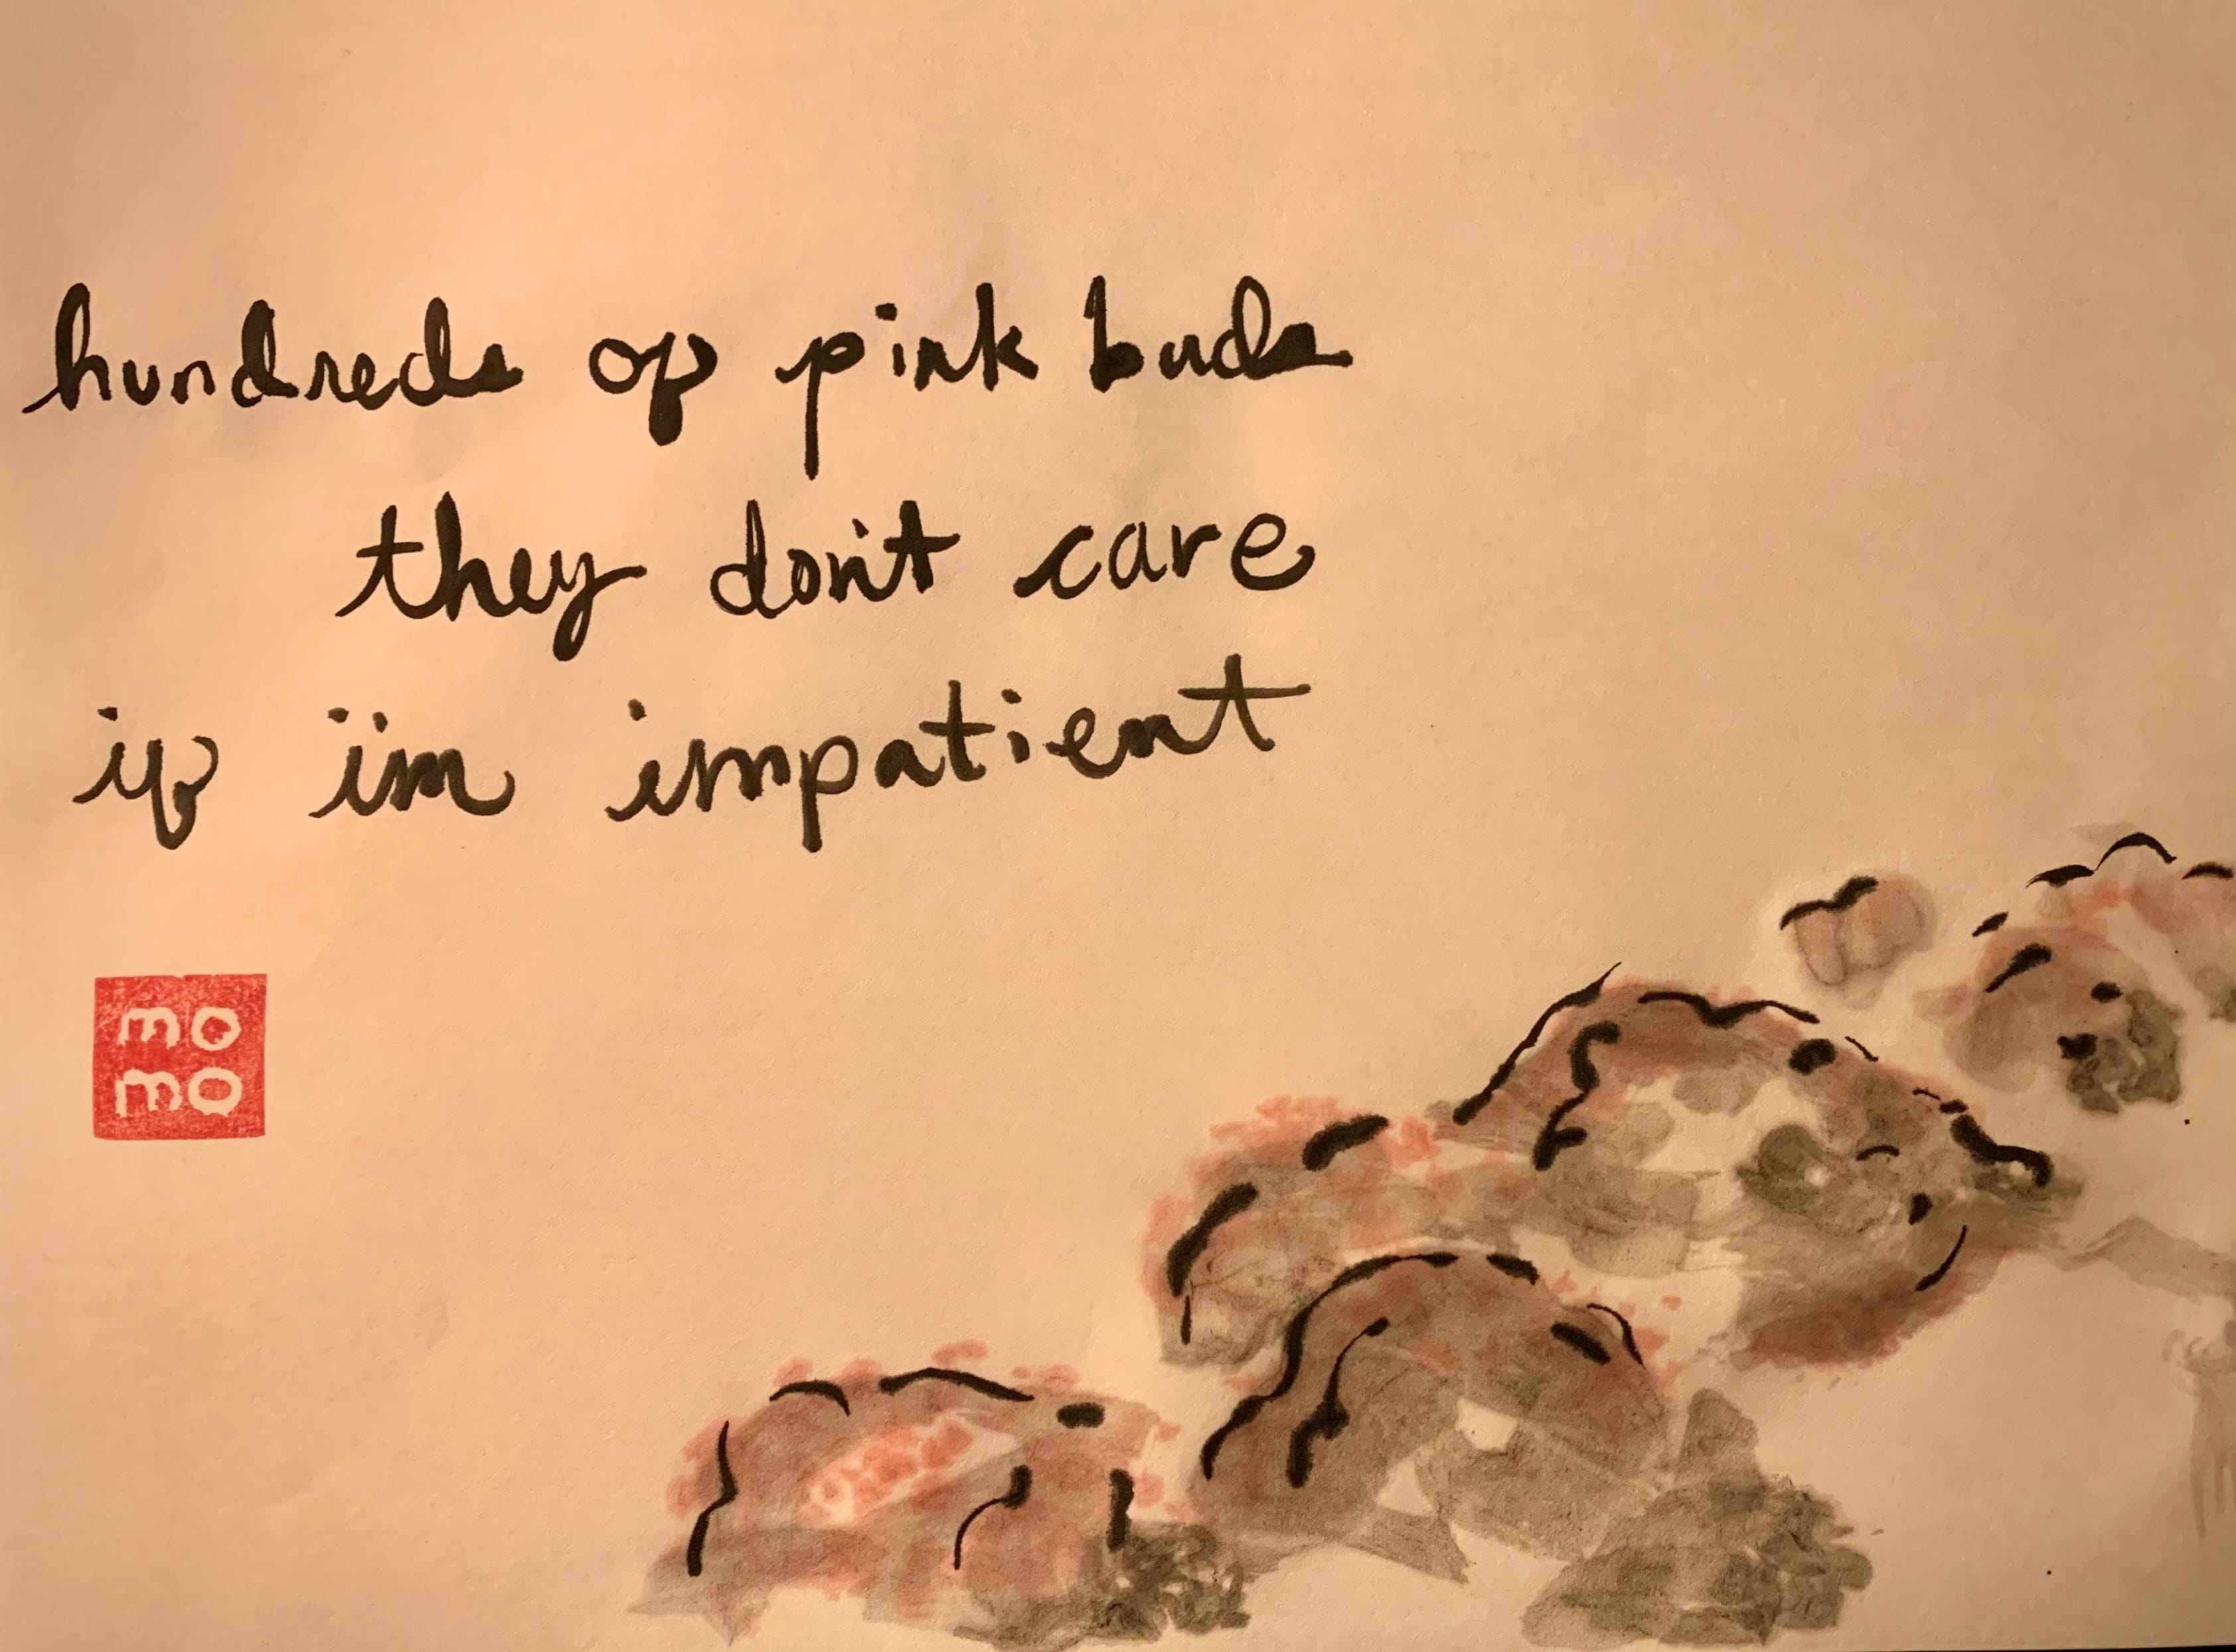 hundreds of pink buds
they don't care
if i'm impatient
mo
mo